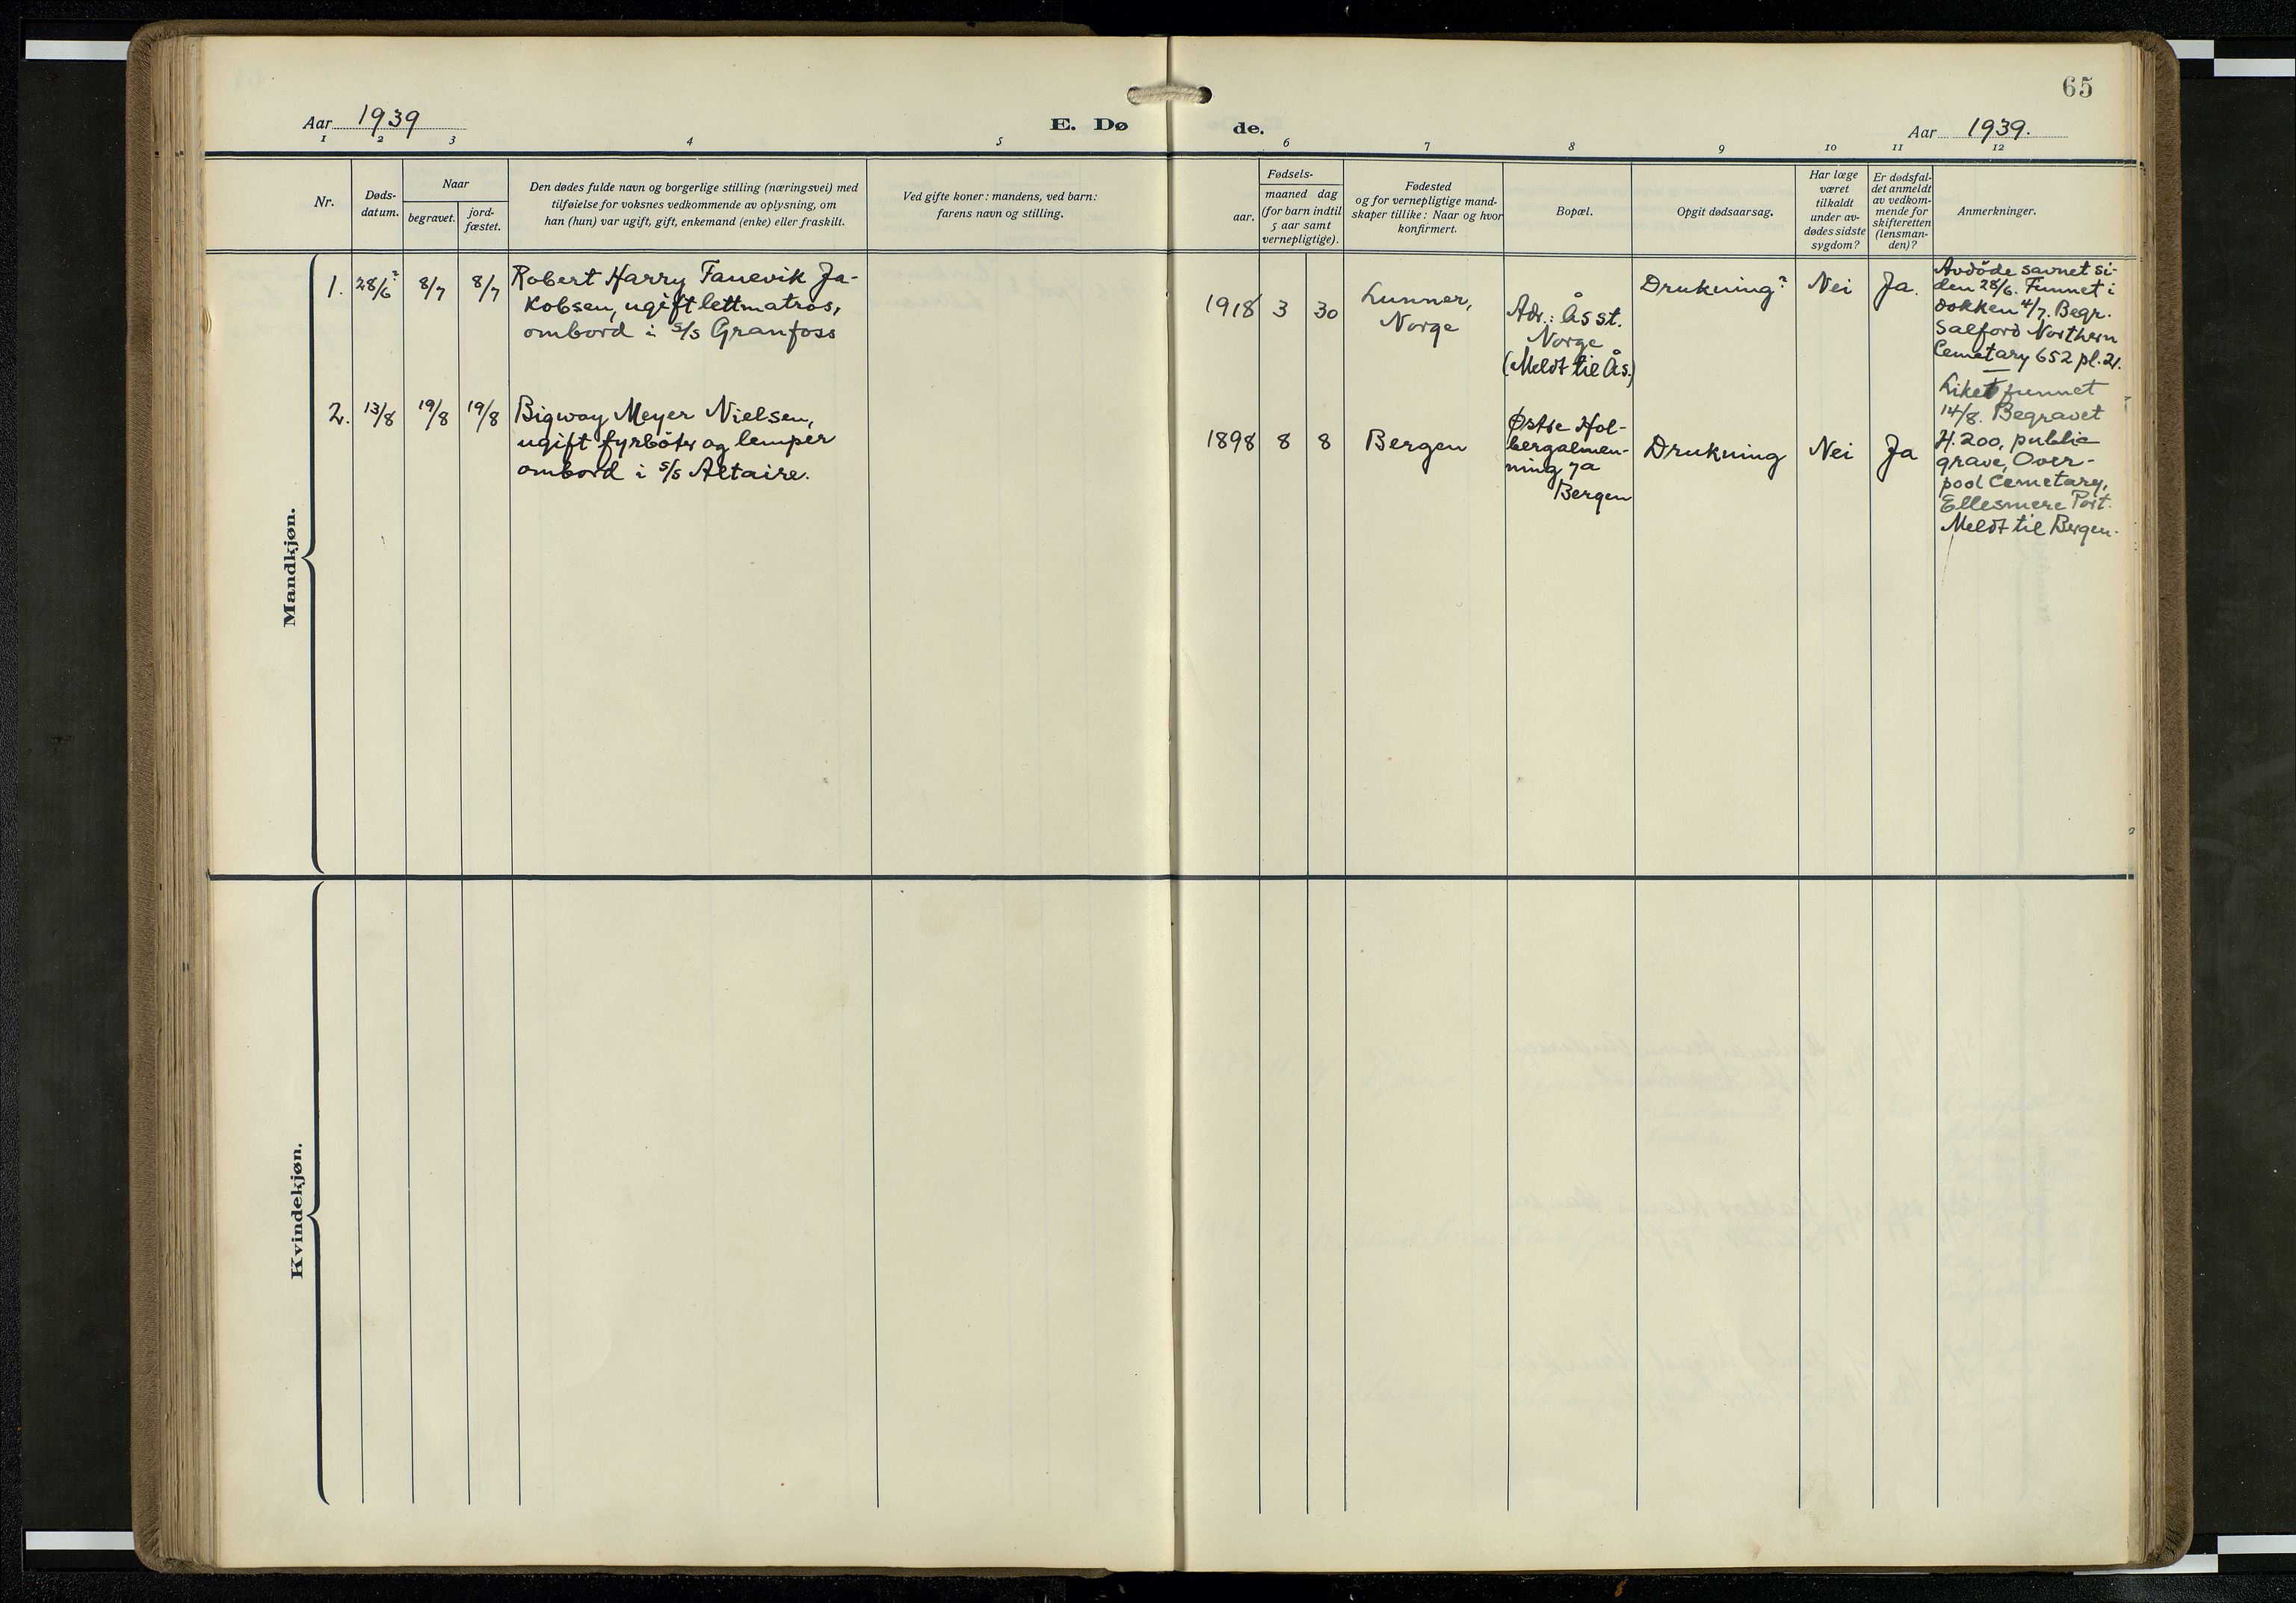 65
Aar 1939
E. Døde.
Aar 1939.
1 2 3 4 5 6 7 8 9 10 11 12
Nr.
Døds-
datum.
Naar
begravet.
jord-
fæstet.
Den dødes fulde navn og borgerlige stilling (næringsvei) med
tilføielse for voksnes vedkommende av oplysning, om
han (hun) var ugift, gift, enkemand (enke) eller fraskilt.
Ved gifte koner: mandens, ved barn:
farens navn og stilling.
Fødsels-
aar.
maaned dag
(for barn indtil
5 aar samt
vernepligtige).
Fødested
og for vernepligtige mand-
skaper tillike: Naar og hvor
konfirmert.
Bopæl.
Opgit dødsaarsag.
Har læge
været
tilkaldt
under av-
dødes sidste
sygdom?
Er dødsfal-
det anmeldt
av vedkom-
mende for
skifteretten
(lensman-
den)?
Anmerkninger.
Mandkjøn.
1. 28/6? 8/7 8/7
Robert Harry Fanevik Ja-
kobsen, ugift lettmatros,
ombord i s/s Granfoss
1918 3 30
Lunner,
Norge
Adr.: Ås st.
Norge
(Meldt til Ås.)
Drukning?
Nei
Ja.
Avdöde savnet si-
den 28/6. Funnet i
dokken 4/7. Begr.
Salford Northern
Cemetary 652 pl. 21.
2. 13/8 19/8 19/8
Bigway Meyer Nielsen,
ugift fyrböter og lemper
ombord i s/s Altaire.
1898 8 8
Bergen
Østre Hol-
bergalmen-
ning 7a
Bergen
Drukning
Nei
Ja
Liket funnet
14/8. Begravet
H. 200, public
grave, Over-
pool Cemetary,
Ellesmere Port.
Meldt til Bergen.
Kvindekjøn.